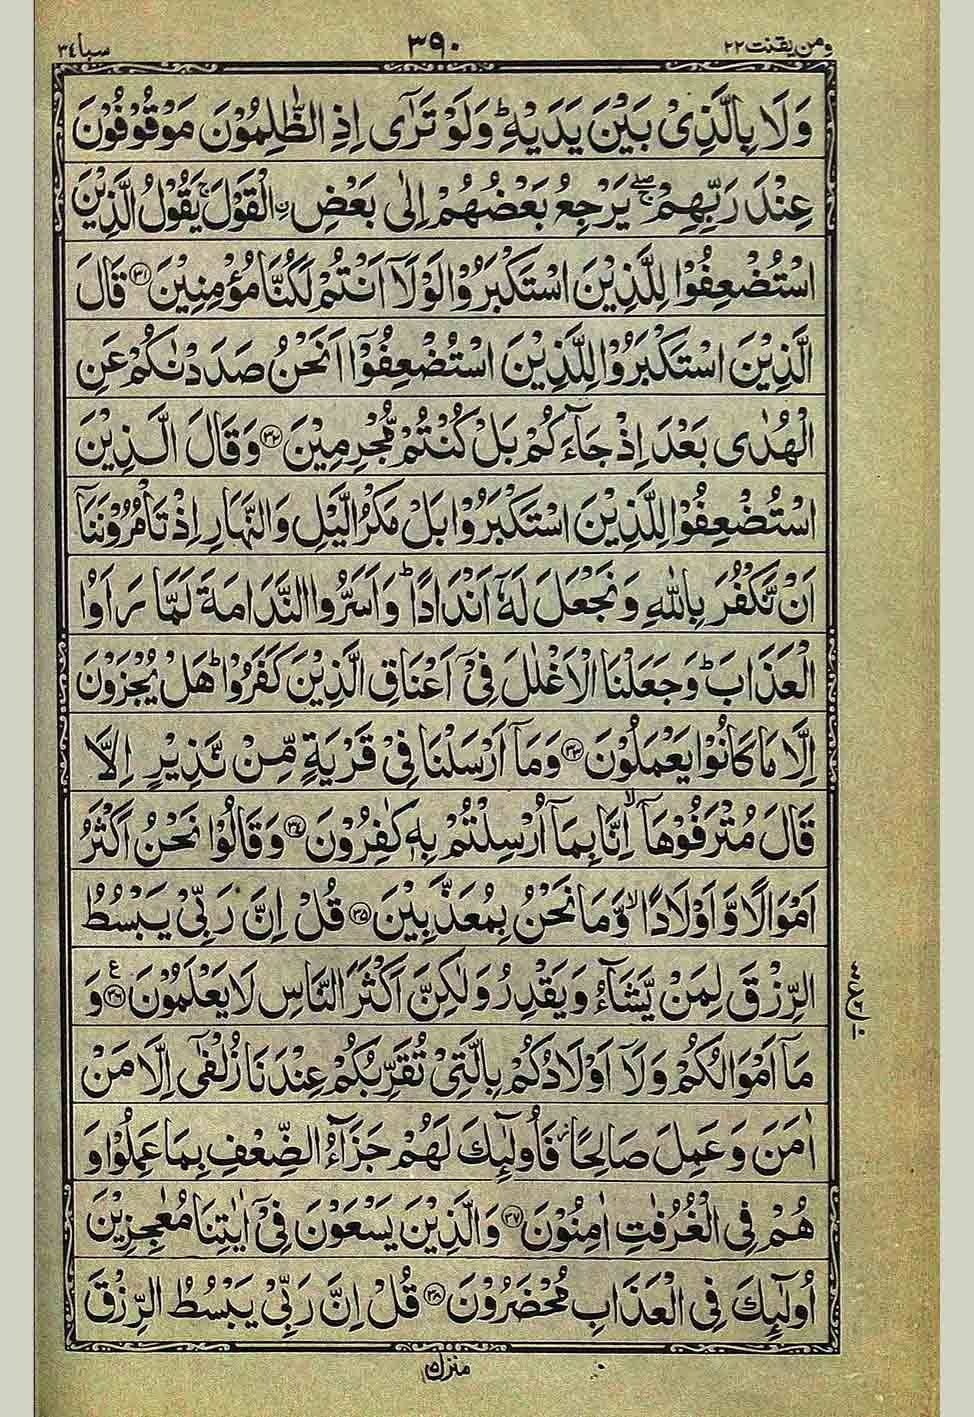 ومن يقنت ٢٢ ٣٩٠ سبا ٣٤
وَلَا بِالَّذِىْ بَيْنَ يَدَيْهِ ؕ وَلَوْ تَرٰٓى اِذِ الظّٰلِمُوْنَ مَوْقُوْفُوْنَ
عِنْدَ رَبِّهِمْ ۖۚ يَرْجِعُ بَعْضُهُمْ اِلٰى بَعْضِ ِۨالْقَوْلَ ۚ يَقُوْلُ الَّذِيْنَ
اسْتُضْعِفُوْا لِلَّذِيْنَ اسْتَكْبَرُوْا لَوْلَاۤ اَنْتُمْ لَكُنَّا مُؤْمِنِيْنَ ﴿۳۱﴾ قَالَ
الَّذِيْنَ اسْتَكْبَرُوْا لِلَّذِيْنَ اسْتُضْعِفُوْۤا اَنَحْنُ صَدَدْنٰكُمْ عَنِ
الْهُدٰى بَعْدَ اِذْ جَآءَكُمْ بَلْ كُنْتُمْ مُّجْرِمِيْنَ ﴿۳۲﴾ وَقَالَ الَّذِيْنَ
اسْتُضْعِفُوْا لِلَّذِيْنَ اسْتَكْبَرُوْا بَلْ مَكْرُ الَّيْلِ وَالنَّهَارِ اِذْ تَاْمُرُوْنَنَاۤ
اَنْ نَّكْفُرَ بِاللّٰهِ وَنَجْعَلَ لَهٗۤ اَنْدَادًا ؕ وَاَسَرُّوا النَّدَامَةَ لَمَّا رَاَوُا
الْعَذَابَ ؕ وَجَعَلْنَا الْاَغْلٰلَ فِىْۤ اَعْنَاقِ الَّذِيْنَ كَفَرُوْا ؕ هَلْ يُجْزَوْنَ
اِلَّا مَا كَانُوْا يَعْمَلُوْنَ ﴿۳۳﴾ وَمَاۤ اَرْسَلْنَا فِىْ قَرْيَةٍ مِّنْ نَّذِيْرٍ اِلَّا
قَالَ مُتْرَفُوْهَاۤ ۙ اِنَّا بِمَاۤ اُرْسِلْتُمْ بِهٖ كٰفِرُوْنَ ﴿۳۴﴾ وَقَالُوْا نَحْنُ اَكْثَرُ
اَمْوَالًا وَّاَوْلَادًا ۙ وَّمَا نَحْنُ بِمُعَذَّبِيْنَ ﴿۳۵﴾ قُلْ اِنَّ رَبِّىْ يَبْسُطُ
الرِّزْقَ لِمَنْ يَّشَآءُ وَيَقْدِرُ وَلٰكِنَّ اَكْثَرَ النَّاسِ لَا يَعْلَمُوْنَ ﴿۳۶﴾ ع وَ
مَاۤ اَمْوَالُكُمْ وَلَاۤ اَوْلَادُكُمْ بِالَّتِىْ تُقَرِّبُكُمْ عِنْدَنَا زُلْفٰٓى اِلَّا مَنْ
اٰمَنَ وَعَمِلَ صَالِحًا ؗ فَاُولٰٓئِكَ لَهُمْ جَزَآءُ الضِّعْفِ بِمَا عَمِلُوْا وَ
هُمْ فِى الْغُرُفٰتِ اٰمِنُوْنَ ﴿۳۷﴾ وَالَّذِيْنَ يَسْعَوْنَ فِىْۤ اٰيٰتِنَا مُعٰجِزِيْنَ
اُولٰٓئِكَ فِى الْعَذَابِ مُحْضَرُوْنَ ﴿۳۸﴾ قُلْ اِنَّ رَبِّىْ يَبْسُطُ الرِّزْقَ
منزل ٥